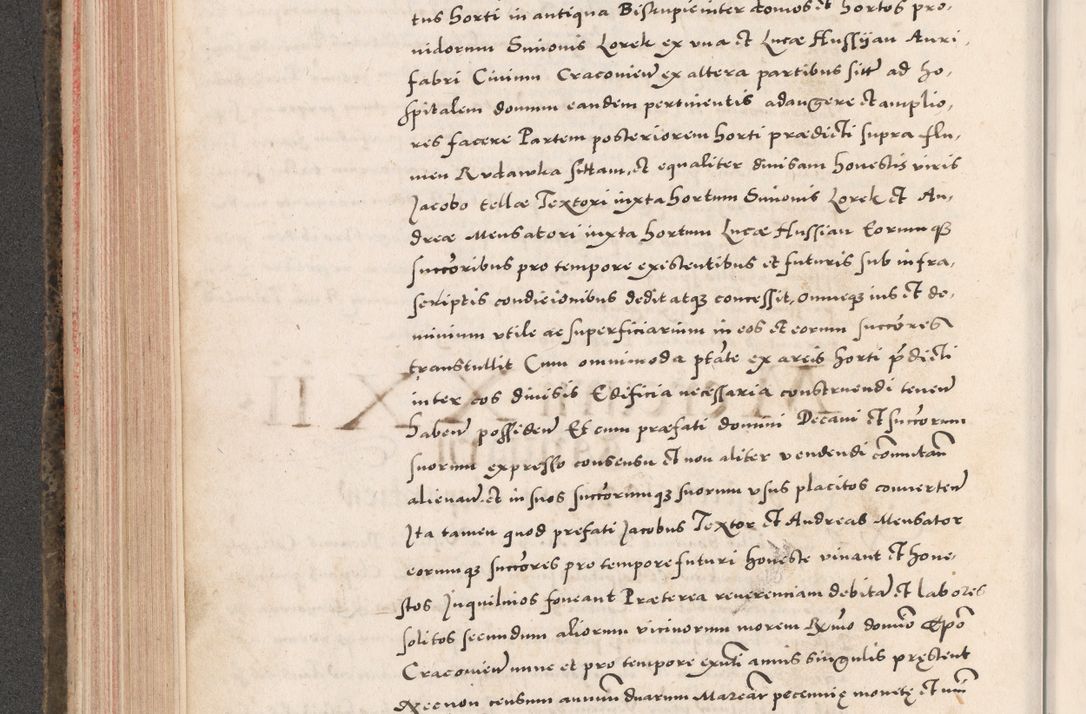 tus horti in antiqua Biskupie inter domos et hortos pro-
vidorum Simonis Lorek ex una et Lucæ Hussijan Auri
fabri Civium Cracovien ex altera partibus sitt ad ho-
spitalem domum eandem pertinentis adaugere et amplio-
res facere Partem posteriorem horti prædicti supra flu-
men Rudawka sittam, et equaliter divisam honestis viris
Jacobo tellæ Textori iuxta hortum Simonis Lorek et An-
dreæ Mensatori iuxta hortum Lucæ Hussian Eorumq3
succoribus pro tempore existentibus et futuris sub infra-
scriptis condicionibus dedit atq3 concessit, omneq3 ius et do-
minium utile ac superficiarium in eos et eorum succores
transtullit Cum omnimoda ptate ex areis horti prdicti
inter eos divisis Edificia necessaria construendi tenen
haben possiden Et cum præfati domini Decani et succorum
suorum expresso consensu et non aliter vendendi commutan
alienan et in suos succorumq3 suorum usus placitos converten
Ita tamen quod prefati Jacobus Textor et Andreas Mensator
eorumq3 succores pro tempore futuri honeste vivant et hone-
stos Inquilinos foveant Præterea reverenciam debitam et labores
solitos secundum aliorum vicinorum morem Rmo domino Epo
Cracovien nunc et pro tempore exnti annis singulis pręstent
Necnon censum annuum duarum Marcar pecunię monetę et nui